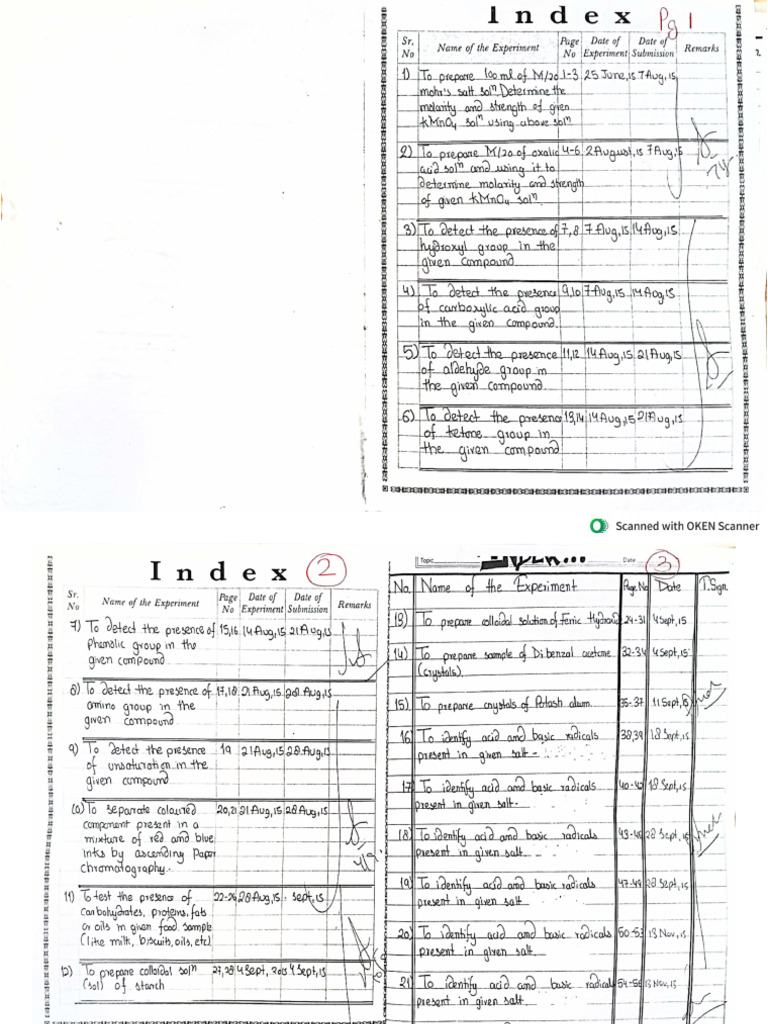 Index
Pg 1
Sr. No Name of the Experiment Page No Date of Experiment Date of Submission Remarks
1) To prepare 100 ml of M/20 1-3 25 June,15 7 Aug,15
mohr's salt solⁿ. Determine the
molarity and strength of given
KMnO₄ solⁿ using above solⁿ
2) To prepare M/20 of oxalic 4-6 2 August,15 7 Aug,15
acid solⁿ and using it to
determine molarity and strength
of given KMnO₄ solⁿ.
3) To detect the presence of 7,8 7 Aug,15 14 Aug,15
hydroxyl group in the
given compound
4) To detect the presence 9,10 7 Aug,15 14 Aug,15
of carboxylic acid group
in the given compound.
5) To detect the presence 11,12 14 Aug,15 21 Aug,15
of aldehyde group in
the given compound.
6) To detect the presence 13,14 14 Aug,15 21 Aug,15
of ketone group in
the given compound
Scanned with OKEN Scanner
Index
2
Sr. No Name of the Experiment Page No Date of Experiment Date of Submission Remarks
7) To detect the presence of 15,16 14 Aug,15 21 Aug,15
Phenolic group in the
given compound.
8) To detect the presence of 17,18 21 Aug,15 28 Aug,15
amino group in the
given compound
9) To detect the presence 19 21 Aug,15 28 Aug,15
of unsaturation in the
given compound
10) To separate coloured 20,21 21 Aug,15 28 Aug,15
component present in a
mixture of red and blue
inks by ascending Paper
chromatography.
11) To test the presence of 22-26 28 Aug,15 Sept,15
carbohydrates, proteins, fats
or oils in given food sample
(like milk, biscuits, oils, etc)
12) To prepare colloidal solⁿ 27,28 4 Sept, 2015 4 Sept,15
(sol) of starch
Topic
Date
3
No. Name of the Experiment Page. No Date T.Sign.
13) To prepare colloidal solution of Ferric Hydroxide 24-31 4 Sept,15
14) To prepare sample of Dibenzal acetone 32-34 4 Sept,15
(crystals).
15) To prepare crystals of Potash alum. 35-37 11 Sept,15
16) To identify acid and basic radicals 38,39 18 Sept,15
present in given salt.
17) To identify acid and basic radicals 40-42 18 Sept,15
present in given salt.
18) To identify acid and basic radicals 43-46 28 Sept,15
present in given salt.
19) To identify acid and basic radicals 47-49 28 Sept,15
present in given salt
20) To identify acid and basic radicals 50-53 13 Nov,15
present in given salt
21) To identify acid and basic radicals 54-56 13 Nov,15
present in given salt